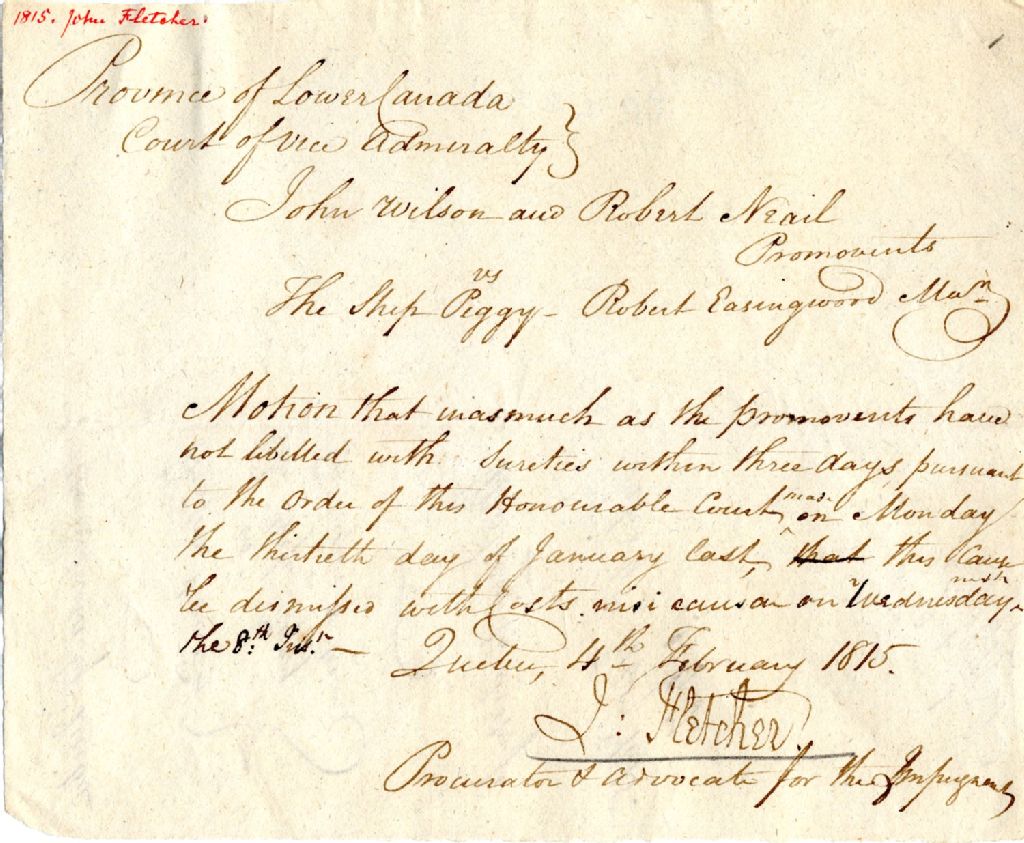 1815. John Fletcher.
Province of Lower Canada
Court of Vice Admiralty }
John Wilson and Robert Neail
Promovents
vs
The Ship Peggy - Robert Easingwood Masr.
Motion that inasmuch as the promovents have
not libelled with sureties within three days, pursuant
to the Order of this Honourable Court, made on Monday
the thirtieth day of January last, that this Cause
be dismissed with Costs nisi causa on Wednesday next
the 8th. Inst. —
Quebec, 4th February 1815.
J: Fletcher.
Procurator & Advocate for the Impugnant